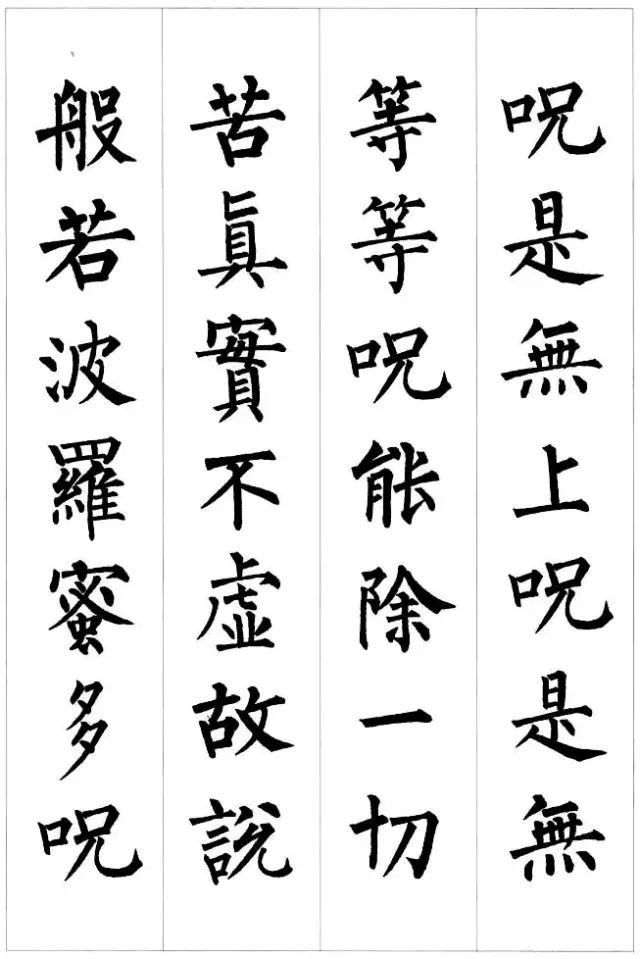 呪是無上呪是無
等等呪能除一切
苦眞實不虛故說
般若波羅蜜多呪